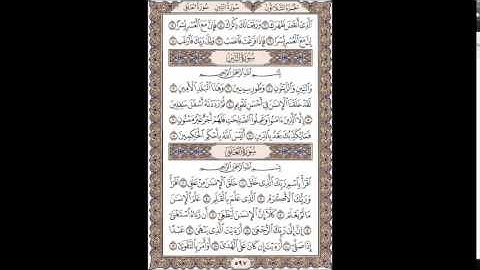 الجزء الثلاثون سورة التين سورة العلق
الَّذِي أَنقَضَ ظَهْرَكَ ٣ وَرَفَعْنَا لَكَ ذِكْرَكَ ٤ فَإِنَّ مَعَ الْعُسْرِ يُسْرًا ٥
إِنَّ مَعَ الْعُسْرِ يُسْرًا ٦ فَإِذَا فَرَغْتَ فَانصَبْ ٧ وَإِلَىٰ رَبِّكَ فَارْغَب ٨
سُورَةُ التِّينِ
بِسْمِ اللَّهِ الرَّحْمَٰنِ الرَّحِيمِ
وَالتِّينِ وَالزَّيْتُونِ ١ وَطُورِ سِينِينَ ٢ وَهَٰذَا الْبَلَدِ الْأَمِينِ ٣
لَقَدْ خَلَقْنَا الْإِنسَانَ فِي أَحْسَنِ تَقْوِيمٍ ٤ ثُمَّ رَدَدْنَاهُ أَسْفَلَ سَافِلِينَ ٥
إِلَّا الَّذِينَ آمَنُوا وَعَمِلُوا الصَّالِحَاتِ فَلَهُمْ أَجْرٌ غَيْرُ مَمْنُونٍ ٦
فَمَا يُكَذِّبُكَ بَعْدُ بِالدِّينِ ٧ أَلَيْسَ اللَّهُ بِأَحْكَمِ الْحَاكِمِينَ ٨
سُورَةُ الْعَلَقِ
بِسْمِ اللَّهِ الرَّحْمَٰنِ الرَّحِيمِ
اقْرَأْ بِاسْمِ رَبِّكَ الَّذِي خَلَقَ ١ خَلَقَ الْإِنسَانَ مِنْ عَلَقٍ ٢ اقْرَأْ
وَرَبُّكَ الْأَكْرَمُ ٣ الَّذِي عَلَّمَ بِالْقَلَمِ ٤ عَلَّمَ الْإِنسَانَ
مَا لَمْ يَعْلَمْ ٥ كَلَّا إِنَّ الْإِنسَانَ لَيَطْغَىٰ ٦ أَن رَّآهُ اسْتَغْنَىٰ
٧ إِنَّ إِلَىٰ رَبِّكَ الرُّجْعَىٰ ٨ أَرَأَيْتَ الَّذِي يَنْهَىٰ ٩ عَبْدًا
إِذَا صَلَّىٰ ١٠ أَرَأَيْتَ إِن كَانَ عَلَى الْهُدَىٰ ١١ أَوْ أَمَرَ بِالتَّقْوَىٰ ١٢
٥٩٧